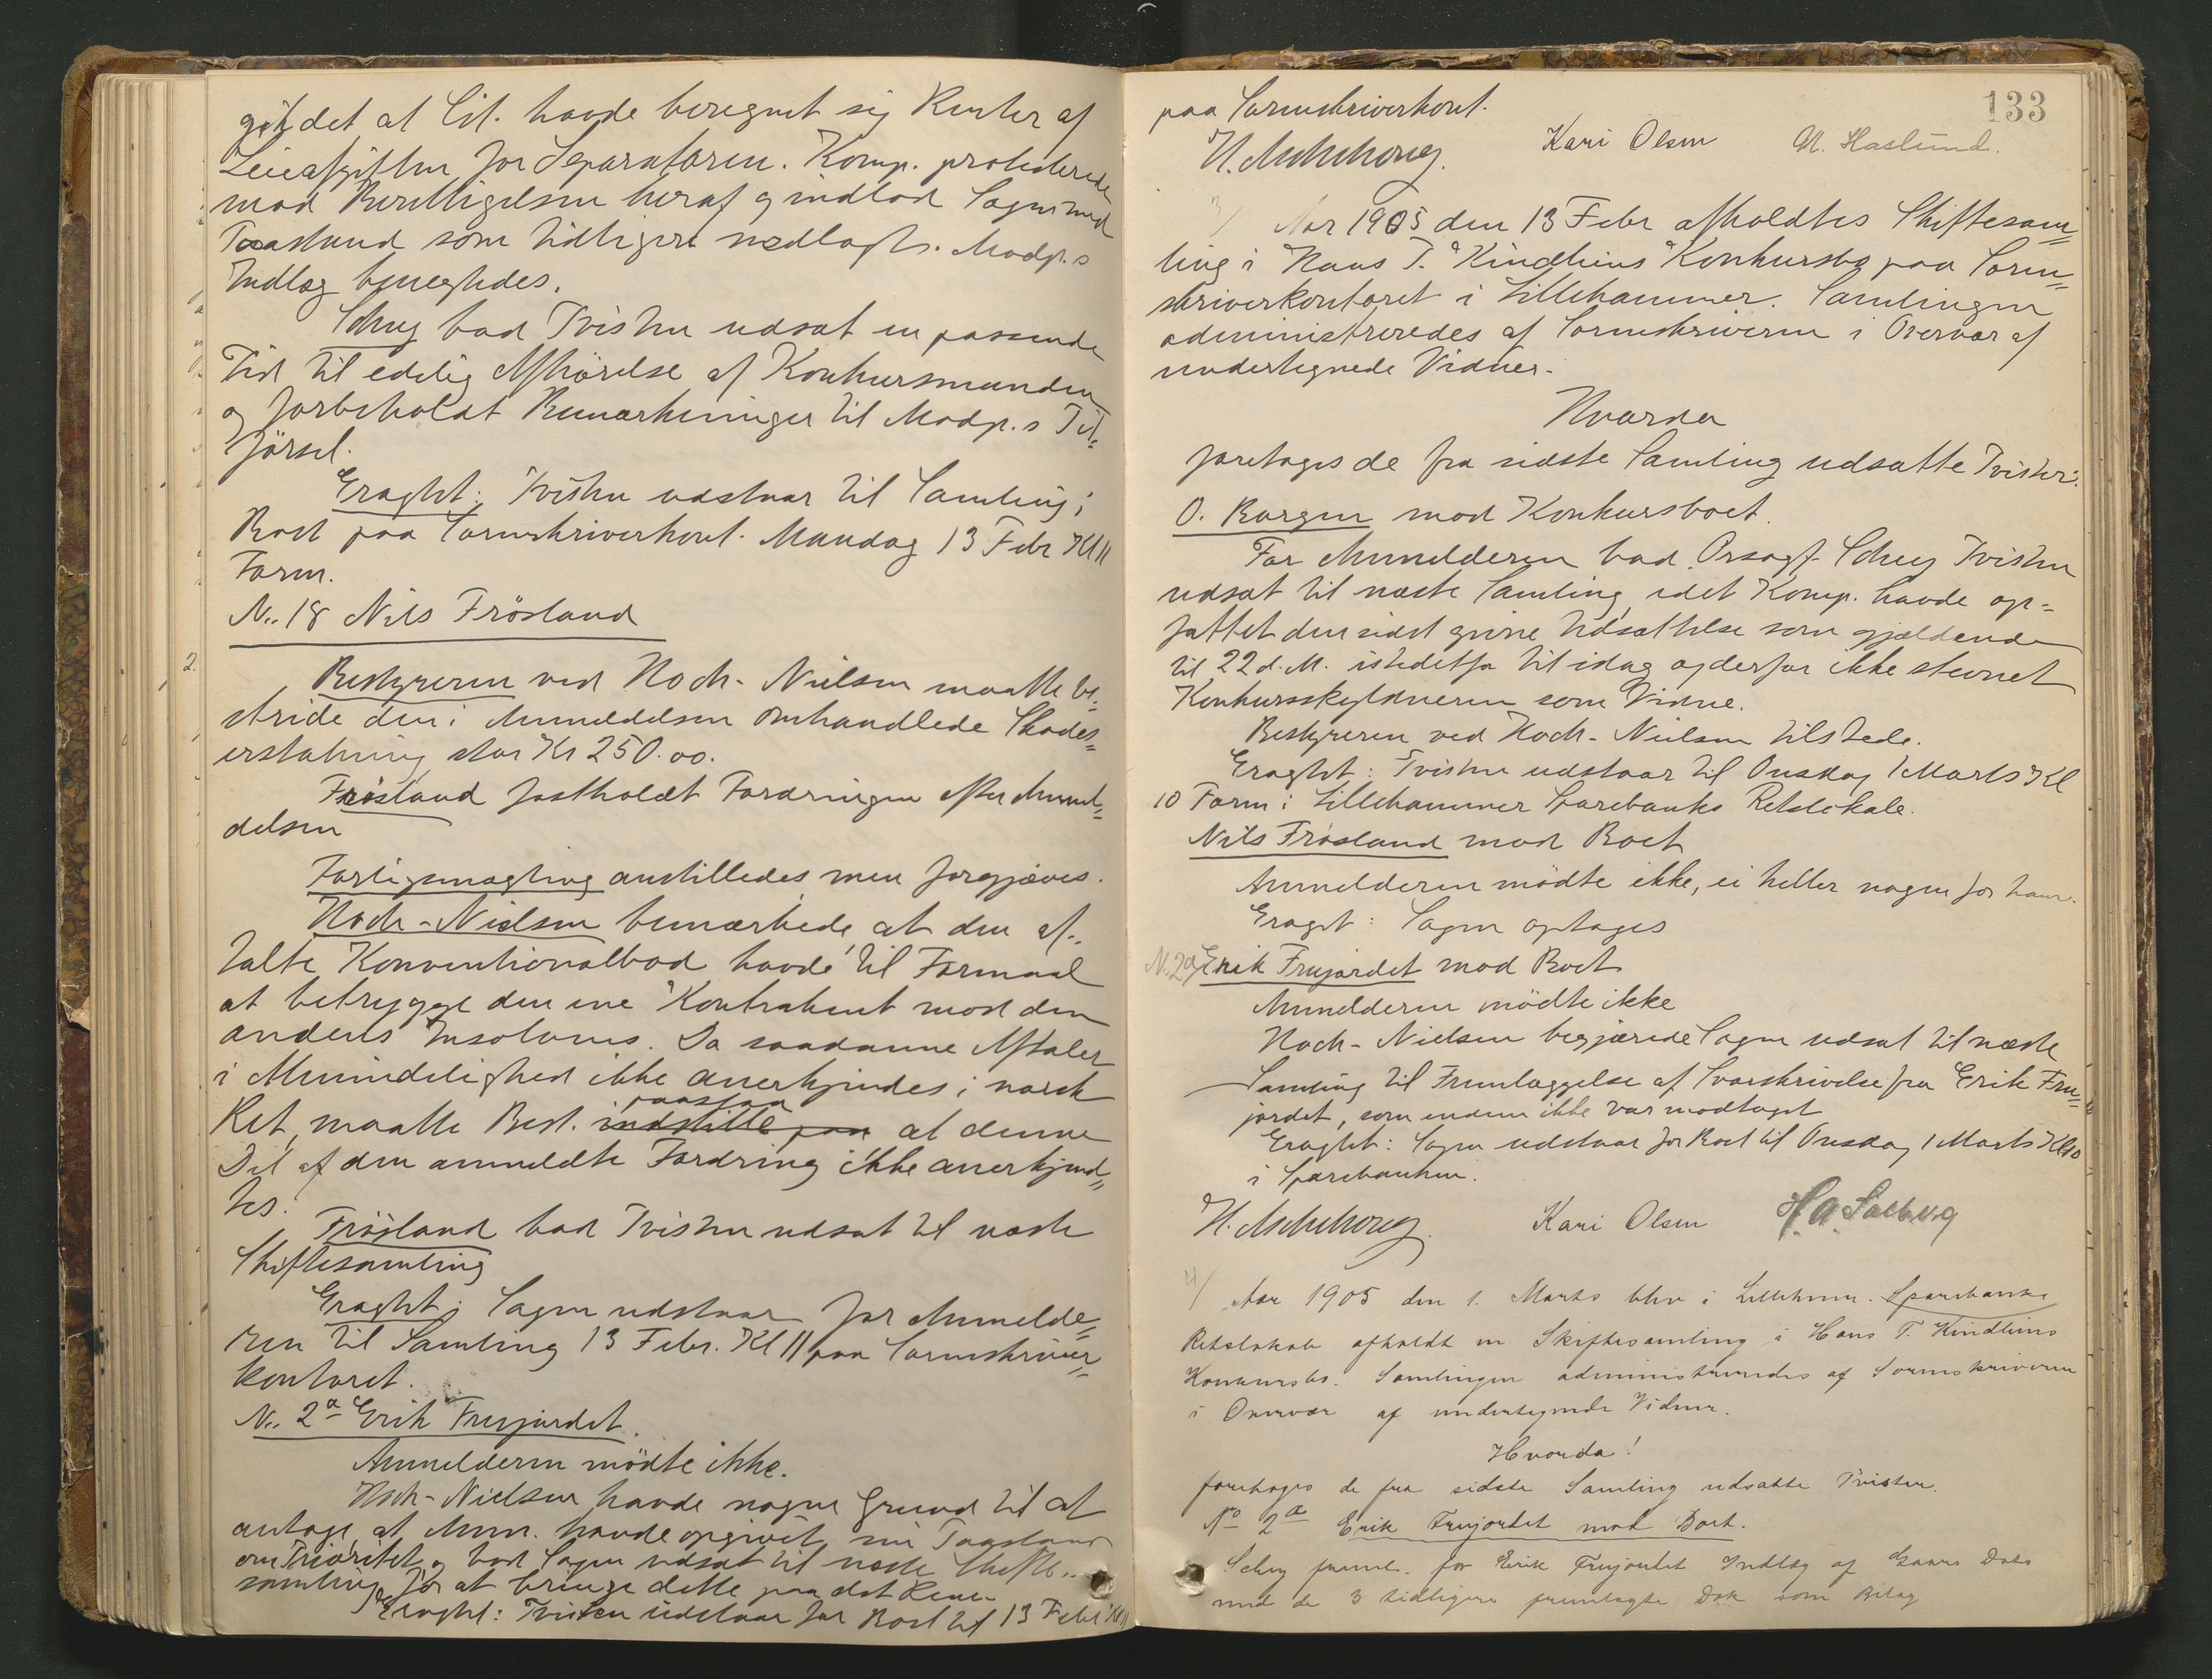 gik det at Cit. havde beregnet sig Renter af
Leieafgiften for Separatoren. Komp. protesterede
mod Berettigelsen heraf og indlod Sagen med
Paastand som tidligere nedlagt. Modp.s
Indlæg benegtedes.
Schey bad Tvisten udsat en passende
Tid til edelig Afhörelse af Konkursmanden
og forbeholdt Bemærkninger til Modp.s Til=
førsel.
Eragtet: Tvisten udstaar til Samling i
Boet paa Sorenskriverkont. Mandag 13 Febr Kl 11
Form.
No. 18 Nils Frösland
2.
Bestyreren ved Hoch-Nielsen maatte be=
stride den i Anmeldelsen omhandlede Skades=
erstatning stor Kr 250.00.
Frösland fastholdt Fordringen efter Anmel=
delsen
Forligsmægling anstilledes men forgjæves.
Hoch-Nielsen bemærkede, at den af=
talte Konventionalbod havde til Formaal
at betrygge den ene Kontrahent mod den
andens Insolvens. Da saadanne Aftaler
i Almindelighed ikke anerkjendes i norsk
Ret, maatte Best. indstille paa paastaa at denne
Del af den anmeldte Fordring ikke anerkjend=
tes.
Frösland bad Tvisten udsat til næste
Skiftesamling
Eragtet: Sagen udstaar for Anmelde=
ren til Samling 13 Febr. Kl 11 paa Sorenskriver=
kontoret.
No. 2a Erik Frujordet.
Anmelderen mödte ikke.
Hoch-Nielsen havde nogen Grund til at
antage, at Anm. havde opgivet sin Paastand
om Prioritet og bad Sagen udsat til næste Skifte=
samling for at bringe dette paa det Rene.
Eragtet: Tvisten udstaar for Boet til 13 Febr Kl 11
133
paa Sorenskriverkont.
H. Aschehoug. Kari Olsen M. Haslund.
3/ Aar 1905 den 13 Febr afholdtes Skiftesam=
ling i Hans T. Kindlins Konkursbo paa Soren=
skriverkontoret i Lillehammer. Samlingen
administreredes af Sorenskriveren i Overvær af
undertegnede Vidner.
Hvorda
foretoges de fra sidste Samling udsatte Tvister:
O. Borgen mod Konkursboet.
For Anmelderen bad Orsagf. Schey Tvisten
udsat til næste Samling idet Komp. havde op=
fattet den sidst givne Udsættelse som gjældende
til 22 d.M. istedetfor til idag og derfor ikke stevnet
Konkursskyldneren som Vidne.
Bestyreren ved Hoch-Nielsen tilstede.
Eragtet: Tvisten udstaar til Onsdag 1 Marts Kl
10 Form i Lillehammer Sparebanks Retslokale.
Nils Frösland mod Boet
Anmelderen mödte ikke, ei heller nogen for ham.
Eragt: Sagen optages
N. 2a/ Erik Frujordet mod Boet
Anmelderen mödte ikke
Hoch-Nielsen begjærede Sagen udsat til næste
Samling til Fremlæggelse af Svarskrivelse fra Erik Fru=
jordet, som endnu ikke var modtaget
Eragtet: Sagen udstaar for Boet til Onsdag 1 Marts Kl 10
i Sparebanken.
H. Aschehoug. Kari Olsen H. A. Salberg
4/ Aar 1905 den 1. Marts blev i Lillehmr. Sparebanks
Retslokale afholdt en Skiftesamling i Hans T. Kindlins
Konkursbo. Samlingen administreredes af Sorenskriveren
i Overvær af undertegnede Vidner.
Hvorda!
foretoges de fra sidste Samling udsatte Tvister.
No 2a Erik Frujordet mod Boet.
Schey freml. for Erik Frujordet Indlæg af Gaars Dato
med de 3 tidligere fremlagte Dok som Bilag